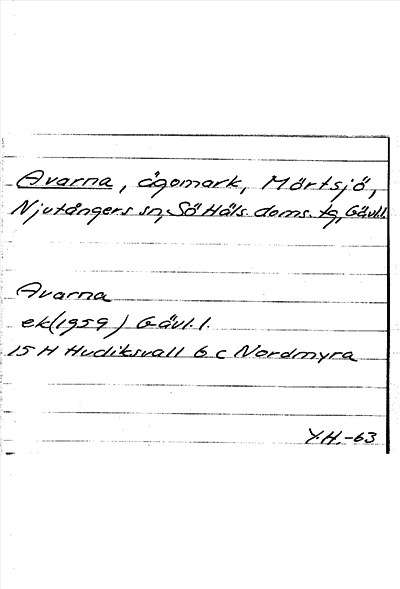 Avarna, ägomark, Mörtsjö,
Njutångers sn, Sö Häls. doms. tg, Gävl.l.
Avarna
ek(1959) Gävl.l.
15 H Hudiksvall 6 c Nordmyra
Y.H.-63